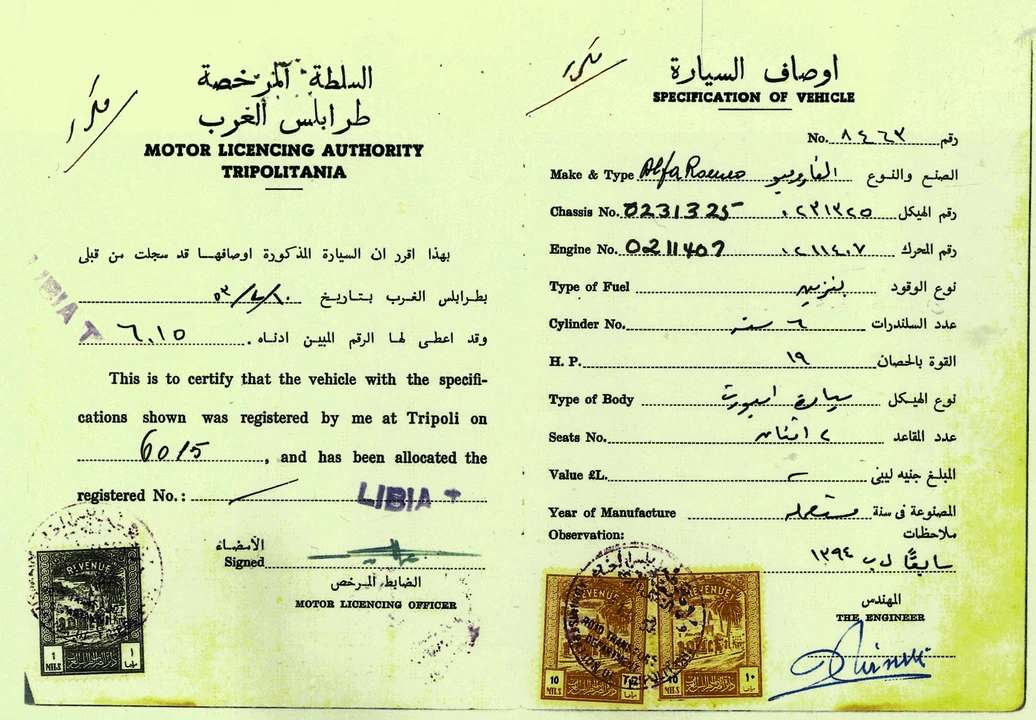 مكرر
السلطة المرخصة
طرابلس الغرب
MOTOR LICENCING AUTHORITY
TRIPOLITANIA
بهذا اقرر ان السيارة المذكورة اوصافهـا قد سجلت من قبلى
بطـرابلس الغرب بـتـاريخ
وقد اعطـى لهـا الرقم المبين ادنـاه . ٦٠١٥
LIBIA T
This is to certify that the vehicle with the specifi-
cations shown was registered by me at Tripoli on
6015, and has been allocated the
registered No.:
LIBIA T
الأمضـاء
Signed
الضابط المرخص
MOTOR LICENCING OFFICER
REVENUE
1 MILS
١
مكرر
اوصاف السيارة
SPECIFICATION OF VEHICLE
No. ٨٤٦٣ رقم
Make & Type Alfa Romeo الفاروميو الصنع والنـوع
Chassis No. 0231325 ٠٢٣١٣٢٥ رقم الهيكل
Engine No. 0211407 ٠٢١١٤٠٧ رقم المحرك
Type of Fuel بنزين نوع الوقود
Cylinder No. ٦ ستة عدد السلندرات
H. P. ١٩ القوة بالحصان
Type of Body سيارة اسبورت نوع الهيـكل
Seats No. ٢ اثنان عدد المقاعد
Value £L. المبلغ جنيه ليبى
Year of Manufacture مستعملة المصنوعة فى سنة
Observation: ملاحظات
سابقًا ل ب ١٣٩٤
المهندس
THE ENGINEER
REVENUE
REVENUE
ROAD TRANSPORT
DEPARTMENT
10 MILS
10
١٠